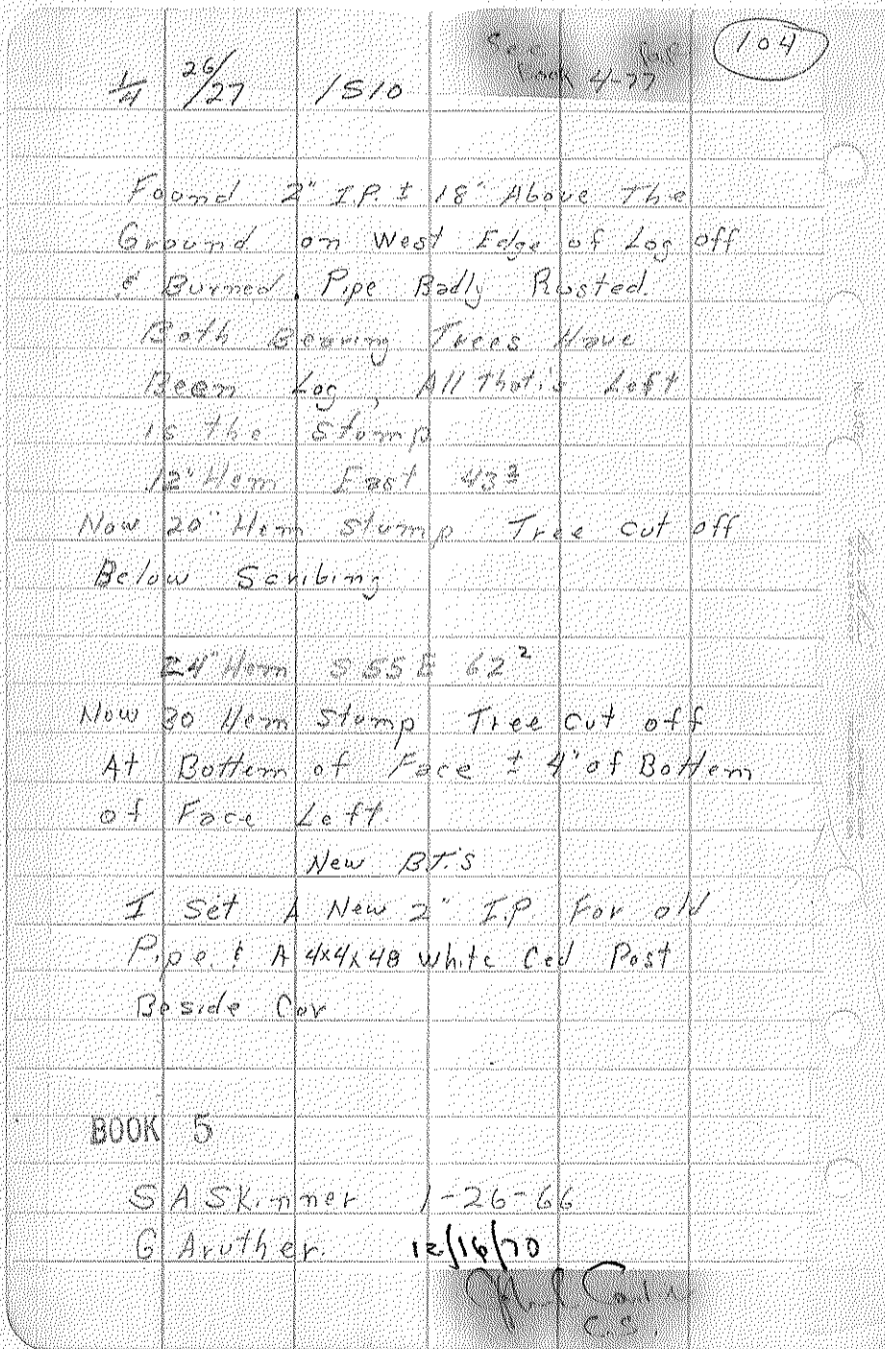 104
4-77
1/4 26/27 1510
Found 2" I.P. ± 18" Above The
Ground on West Edge of Log off
& Burned. Pipe Badly Rusted.
Both Bearing Trees Have
Been Log, All that's Left
is the Stomp
12" Hem East 43²
Now 20" Hem Stump Tree cut off
Below Scribing
24" Hem S 55 E 62²
Now 30 Hem Stump Tree cut off
At Bottem of Face ± 4" of Bottem
of Face Left.
New BT.'s
I Set A New 2" I.P. For old
Pipe. & A 4x4x48 white Ced Post
Beside Cor
BOOK 5
S A Skinner 1-26-66
G Aruther. 12/16/70
C.S.